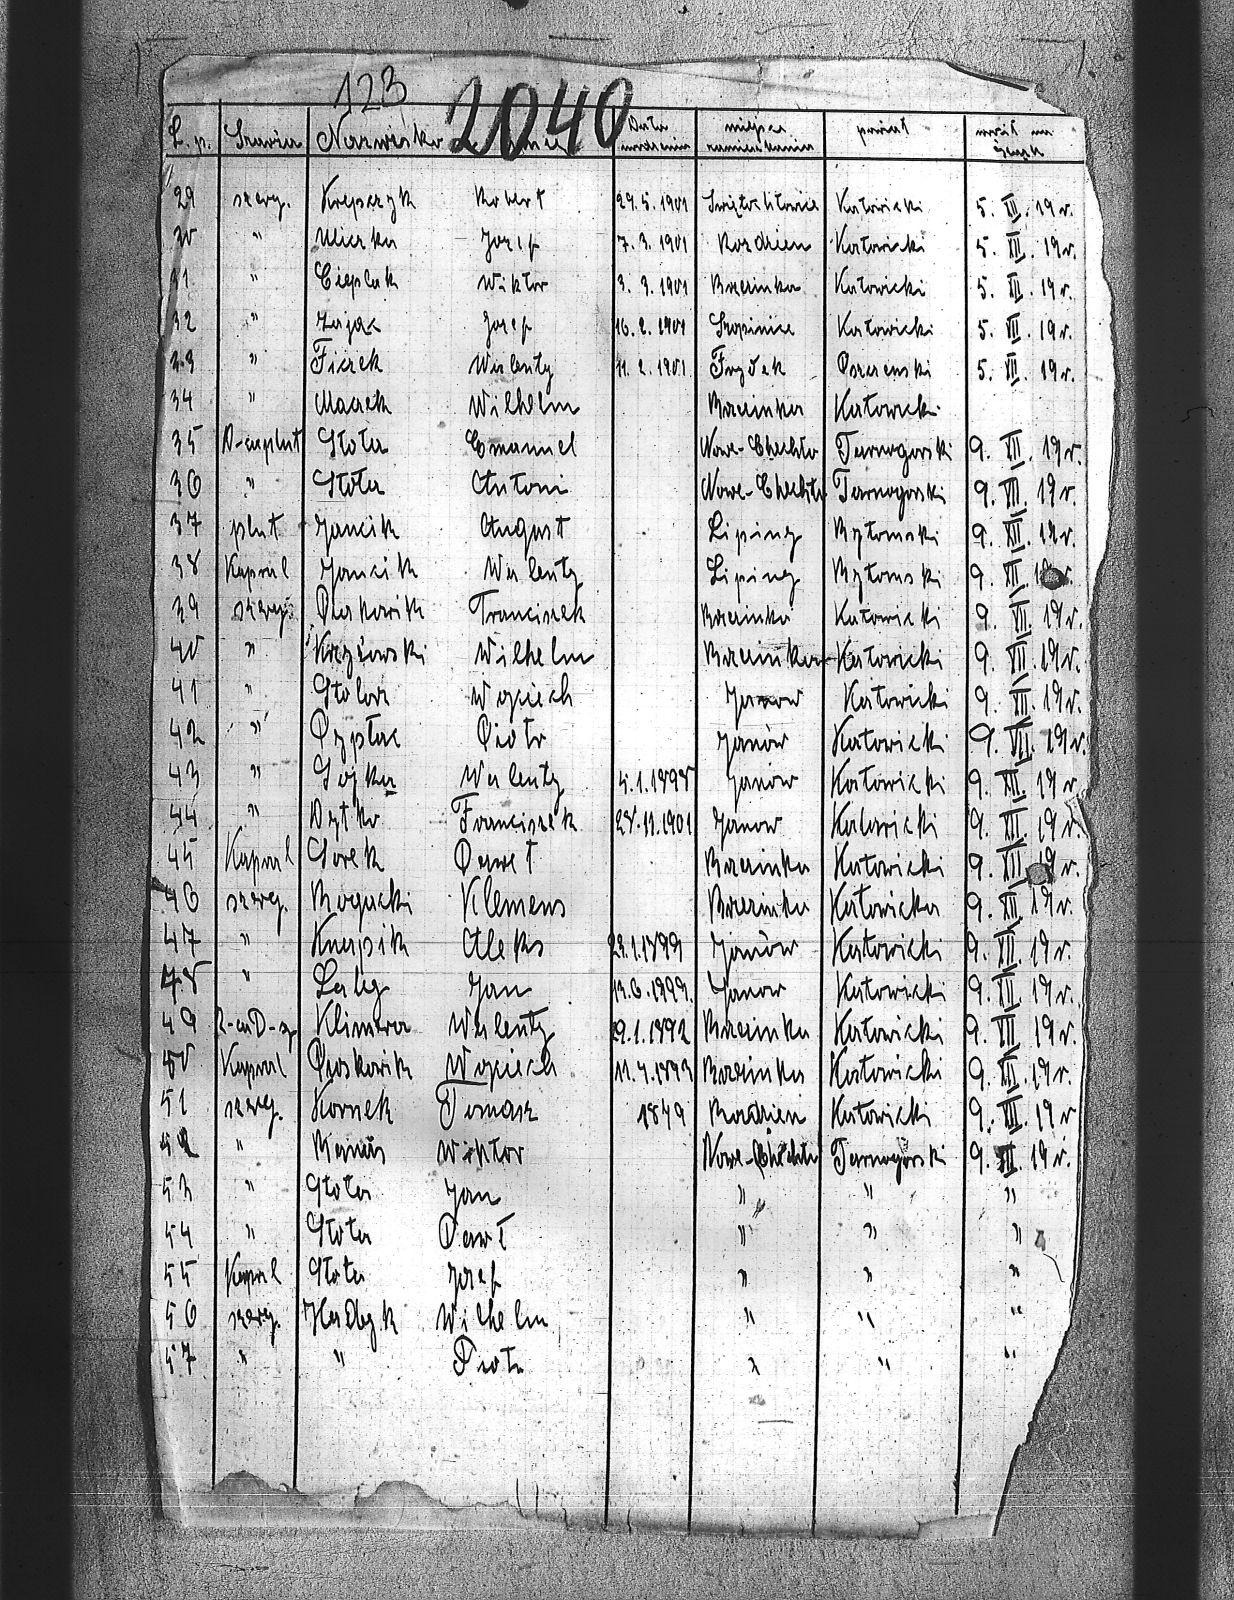 123
2040
L. p. Szarża Nazwisko Data urodzenia miejsce zamieszkania powiat
29 szereg. Krepczyk Robert 29.5.1901 Świętochłowice Katowicki 5. XII. 19 r.
30 " Uliczka Josef 7.3.1901 Rozdzien Katowicki 5. XII. 19 r.
31 " Cieplak Wiktor 3.3.1901 Brzezinka Katowicki 5. XII. 19 r.
32 " Zając Josef 16.2.1901 Szopinice Katowicki 5. XII. 19 r.
33 " Ficek Walenty 11.2.1901 Katowicki 5. XII. 19 r.
34 " Macek Wilhelm Brzezinka Katowicki
35 D-ca plut Głota Emanuel Nowe-Chechło Tarnogorski 9. XII. 19 r.
36 " Głota Antoni Nowe-Chechło Tarnogorski 9. XII. 19 r.
37 plut Jancik August Lipiny Bytomski 9. XII. 19 r.
38 Kapral Jancik Walenty Lipiny Bytomski 9. XII. 19 r.
39 szereg. Piaskowik Franciszek Brzezinka Katowicki 9. XII. 19 r.
40 " Krzyżowski Wilhelm Brzezinka Katowicki 9. XII. 19 r.
41 " Wojciech Janow Katowicki 9. XII. 19 r.
42 " Pyplac Piotr Janów Katowicki 9. XII. 19 r.
43 " Gojka Walenty 4.1.1898 Janów Katowicki 9. XII. 19 r.
44 " Dytko Franciszek 28.11.1901 Janow Katowicki 9. XII. 19 r.
45 Kapral Gorek Paweł Brzezinka Katowicki 9. XII. 19 r.
46 szereg. Bogacki Klemens Brzezinka Katowicka 9. XII. 19 r.
47 " Knapik Aleks 23.1.1899 Janów Katowicki 9. XII. 19 r.
48 " Jan Janow Katowicki 9. XII. 19 r.
49 Klimza Walenty 29.1.1892 Brzezinka Katowicki 9. XII. 19 r.
50 Kapral Piaskowik Wojciech 11.4.1893 Brzezinka Katowicki 9. XII. 19 r.
51 szereg. Kornek Tomasz 1849 Rozdzien Katowicki 9. XII. 19 r
52 " Wiktor Nowe-Chechło Tarnogórski 9. XII. 19 r.
53 " Głota Jan " " "
54 " Głota Pawł " " "
55 Kapral Głota Josef " " "
56 szereg. Hadyk Wilhelm " " "
57 " " Piotr " " "